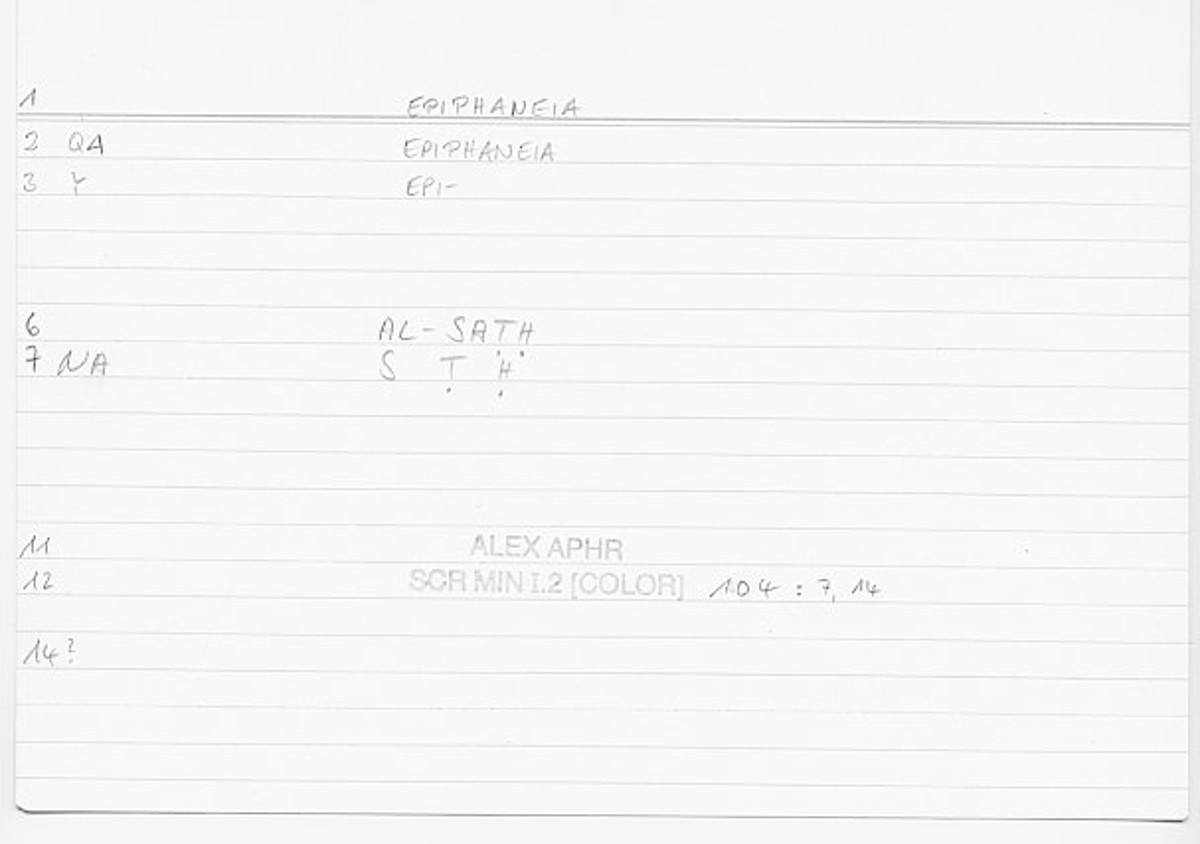 1 EPIPHANEIA
2 QA EPIPHANEIA
3 Y EPI-
6 AL-SAṬḤ
7 NA S Ṭ Ḥ
11 ALEX APHR
12 SCR MIN I.2 [COLOR] 104 : 7, 14
14?